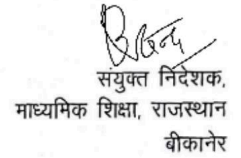 संयुक्त निदेशक,
माध्यमिक शिक्षा, राजस्थान
बीकानेर